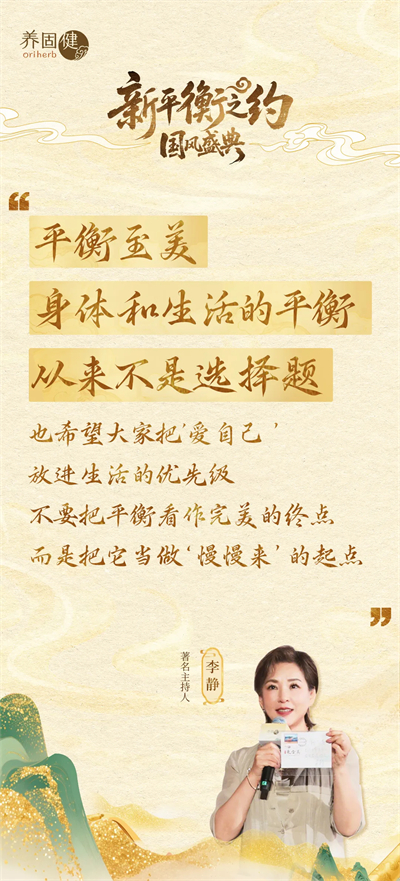 养固健
oriherb
新平衡之约
国风盛典
“
平衡至美
身体和生活的平衡
从来不是选择题
也希望大家把'爱自己'
放进生活的优先级
不要把平衡看作完美的终点
而是把它当做‘慢慢来’的起点
”
李静
著名主持人